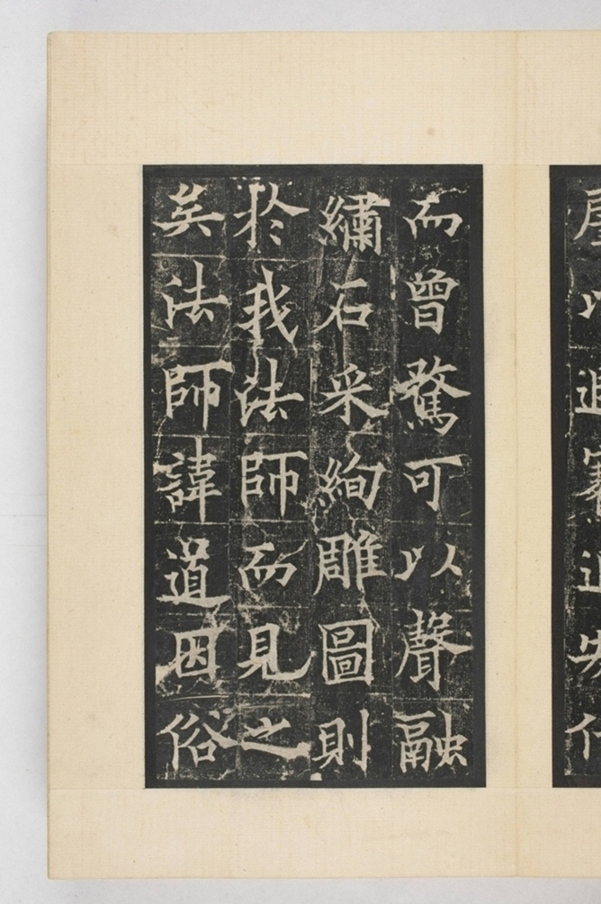 而曾騖可以聲融
繡石采絢雕圖則
於我法師而見之
矣法師諱道因俗